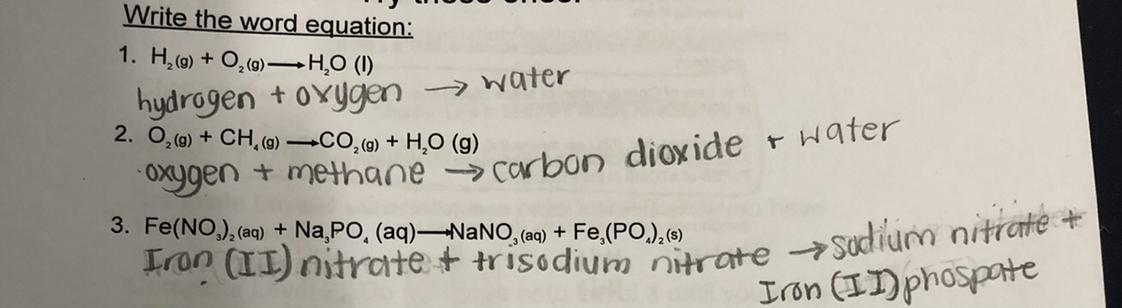 Write the word equation:
1. H₂(g) + O₂(g) ⟶ H₂O (l)
hydrogen + oxygen → water
2. O₂(g) + CH₄(g) ⟶ CO₂(g) + H₂O (g)
oxygen + methane → carbon dioxide + water
3. Fe(NO₃)₂(aq) + Na₃PO₄ (aq) ⟶ NaNO₃(aq) + Fe₃(PO₄)₂(s)
Iron (II) nitrate + trisodium nitrate → sodium nitrate +
Iron (II) phospate